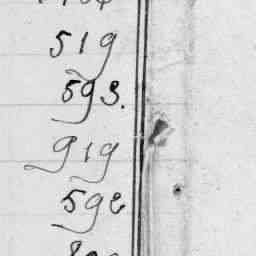 519
593.
919
592